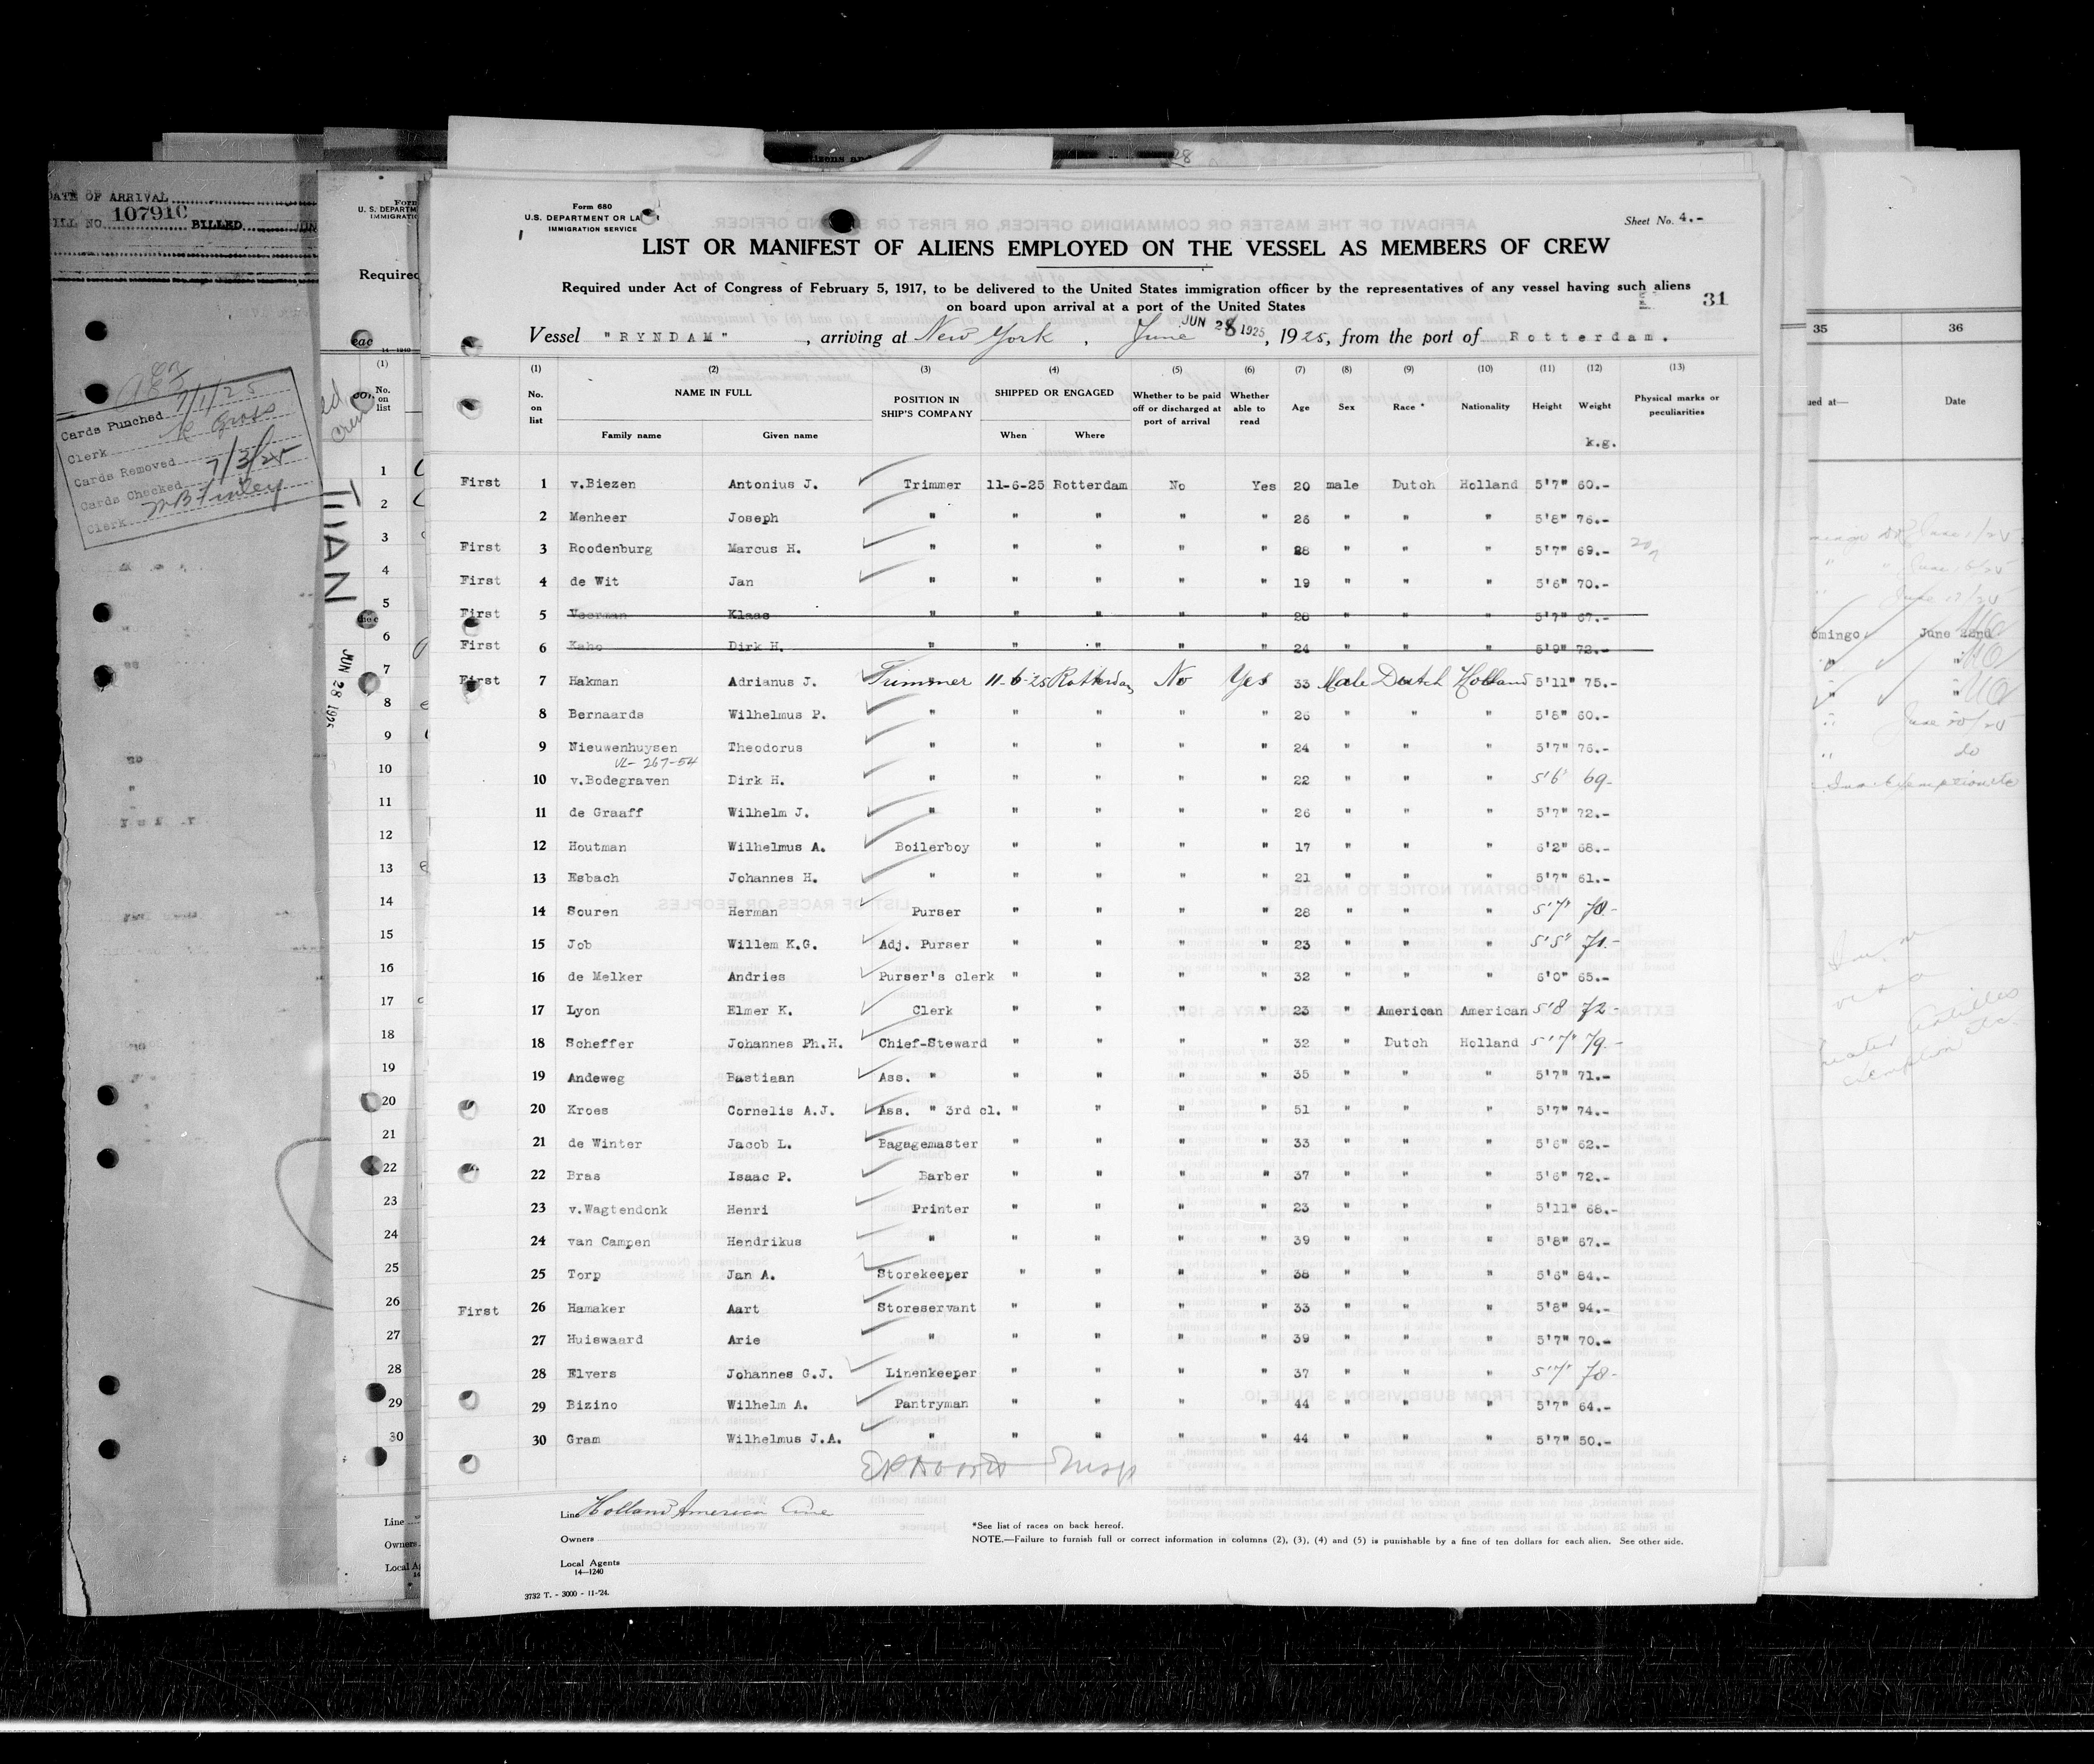 DATE OF ARRIVAL
BILL NO. 107910 BILLED
Cards Punched 7/1/25
Clerk Gross
Cards Removed
Cards Checked 7/3/25
Clerk
JUN 28 1925
Required
Form 680
U.S. DEPARTMENT OR LA
IMMIGRATION SERVICE
Sheet No. 4.-
LIST OR MANIFEST OF ALIENS EMPLOYED ON THE VESSEL AS MEMBERS OF CREW
Required under Act of Congress of February 5, 1917, to be delivered to the United States immigration officer by the representatives of any vessel having such aliens
on board upon arrival at a port of the United States
31
Vessel "RYNDAM", arriving at New York, June JUN 28 1925, 1925, from the port of Rotterdam.
(1) (2) (3) (4) (5) (6) (7) (8) (9) (10) (11) (12) (13)
No. on list NAME IN FULL POSITION IN SHIP'S COMPANY SHIPPED OR ENGAGED Whether to be paid off or discharged at port of arrival Whether able to read Age Sex Race * Nationality Height Weight Physical marks or peculiarities
Family name Given name When Where k.g.
First 1 v.Biezen Antonius J. Trimmer 11-6-25 Rotterdam No Yes 20 male Dutch Holland 5'7" 60.-
2 Menheer Joseph " " " " " 26 " " " 5'8" 76.-
First 3 Roodenburg Marcus H. " " " " " 28 " " " 5'7" 69.-
First 4 de Wit Jan " " " " " 19 " " " 5'6" 70.-
First 5 Veerman Klaas " " " " " 28 " " " 5'7" 67.-
First 6 Kaho Dirk H. " " " " " 24 " " " 5'9" 72.-
First 7 Hakman Adrianus J. Trimmer 11-6-25 Rotterdam No Yes 33 Male Dutch Holland 5'11" 75.-
8 Bernaards Wilhelmus P. " " " " " 26 " " " 5'8" 60.-
9 Nieuwenhuysen Theodorus " " " " " 24 " " " 5'7" 76.-
VL-267-54
10 v.Bodegraven Dirk H. " " " " " 22 " " " 5'6" 69-
11 de Graaff Wilhelm J. " " " " " 26 " " " 5'7" 72.-
12 Houtman Wilhelmus A. Boilerboy " " " " 17 " " " 6'2" 68.-
13 Esbach Johannes H. " " " " " 21 " " " 5'7" 61.-
14 Souren Herman Purser " " " " 28 " " " 5'7" 70.-
15 Job Willem K.G. Adj. Purser " " " " 23 " " " 5'5" 71.-
16 de Melker Andries Purser's clerk " " " " 32 " " " 6'0" 65.-
17 Lyon Elmer K. Clerk " " " " 23 " American American 5'8 72-
18 Scheffer Johannes Ph.H. Chief-Steward " " " " 32 " Dutch Holland 5'7" 79.-
19 Andeweg Bastiaan Ass. " " " " " 35 " " " 5'7" 71.-
20 Kroes Cornelis A.J. Ass. " 3rd cl. " " " " 51 " " " 5'7" 74.-
21 de Winter Jacob L. Bagagemaster " " " " 33 " " " 5'6" 62.-
22 Bras Isaac P. Barber " " " " 37 " " " 5'6" 72.-
23 v.Wagtendonk Henri Printer " " " " 23 " " " 5'11" 68.-
24 van Campen Hendrikus " " " " " 39 " " " 5'8" 67.-
25 Torp Jan A. Storekeeper " " " " 38 " " " 5'6" 84.-
First 26 Hamaker Aart Storeservant " " " " 33 " " " 5'8" 94.-
27 Huiswaard Arie " " " " " 39 " " " 5'7" 70.-
28 Elvers Johannes G.J. Linenkeeper " " " " 37 " " " 5'7" 78-
29 Bizino Wilhelm A. Pantryman " " " " 44 " " " 5'7" 64.-
30 Gram Wilhelmus J.A. " " " " " 44 " " " 5'7" 50.-
Line Holland America Line
Owners
Local Agents
14—1240
*See list of races on back hereof.
NOTE.—Failure to furnish full or correct information in columns (2), (3), (4) and (5) is punishable by a fine of ten dollars for each alien. See other side.
3732 T. - 3000 - 11-'24.
35 36
Date
omingo June 22nd